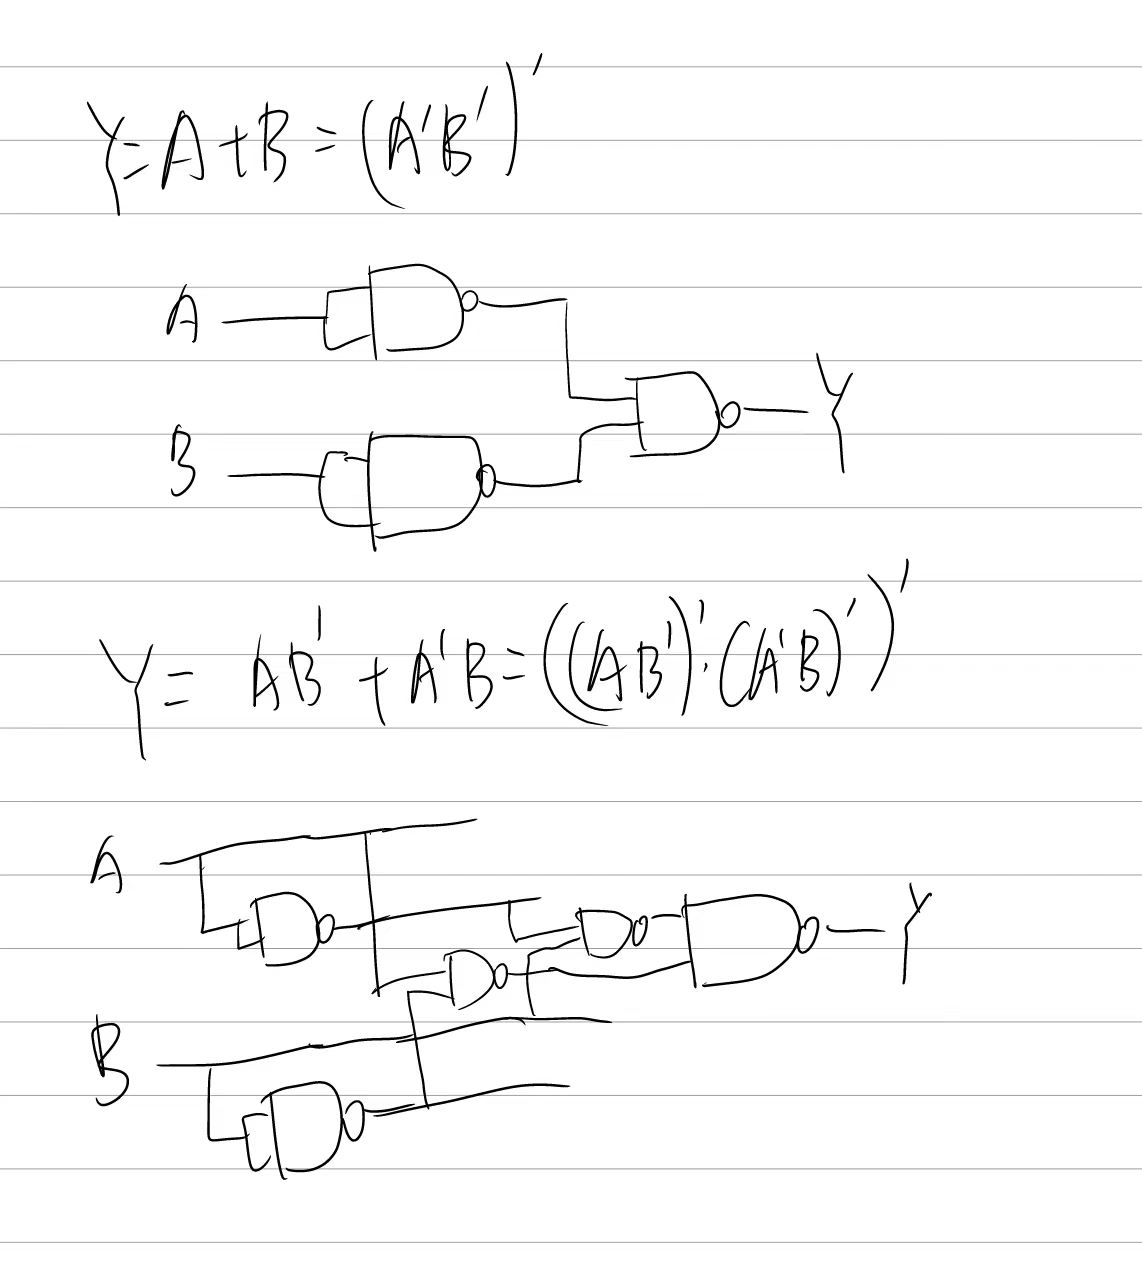 Y=A+B=(A'B')'
A
B
Y
Y=AB'+A'B=((AB')'·(A'B)')'
A
Y
B